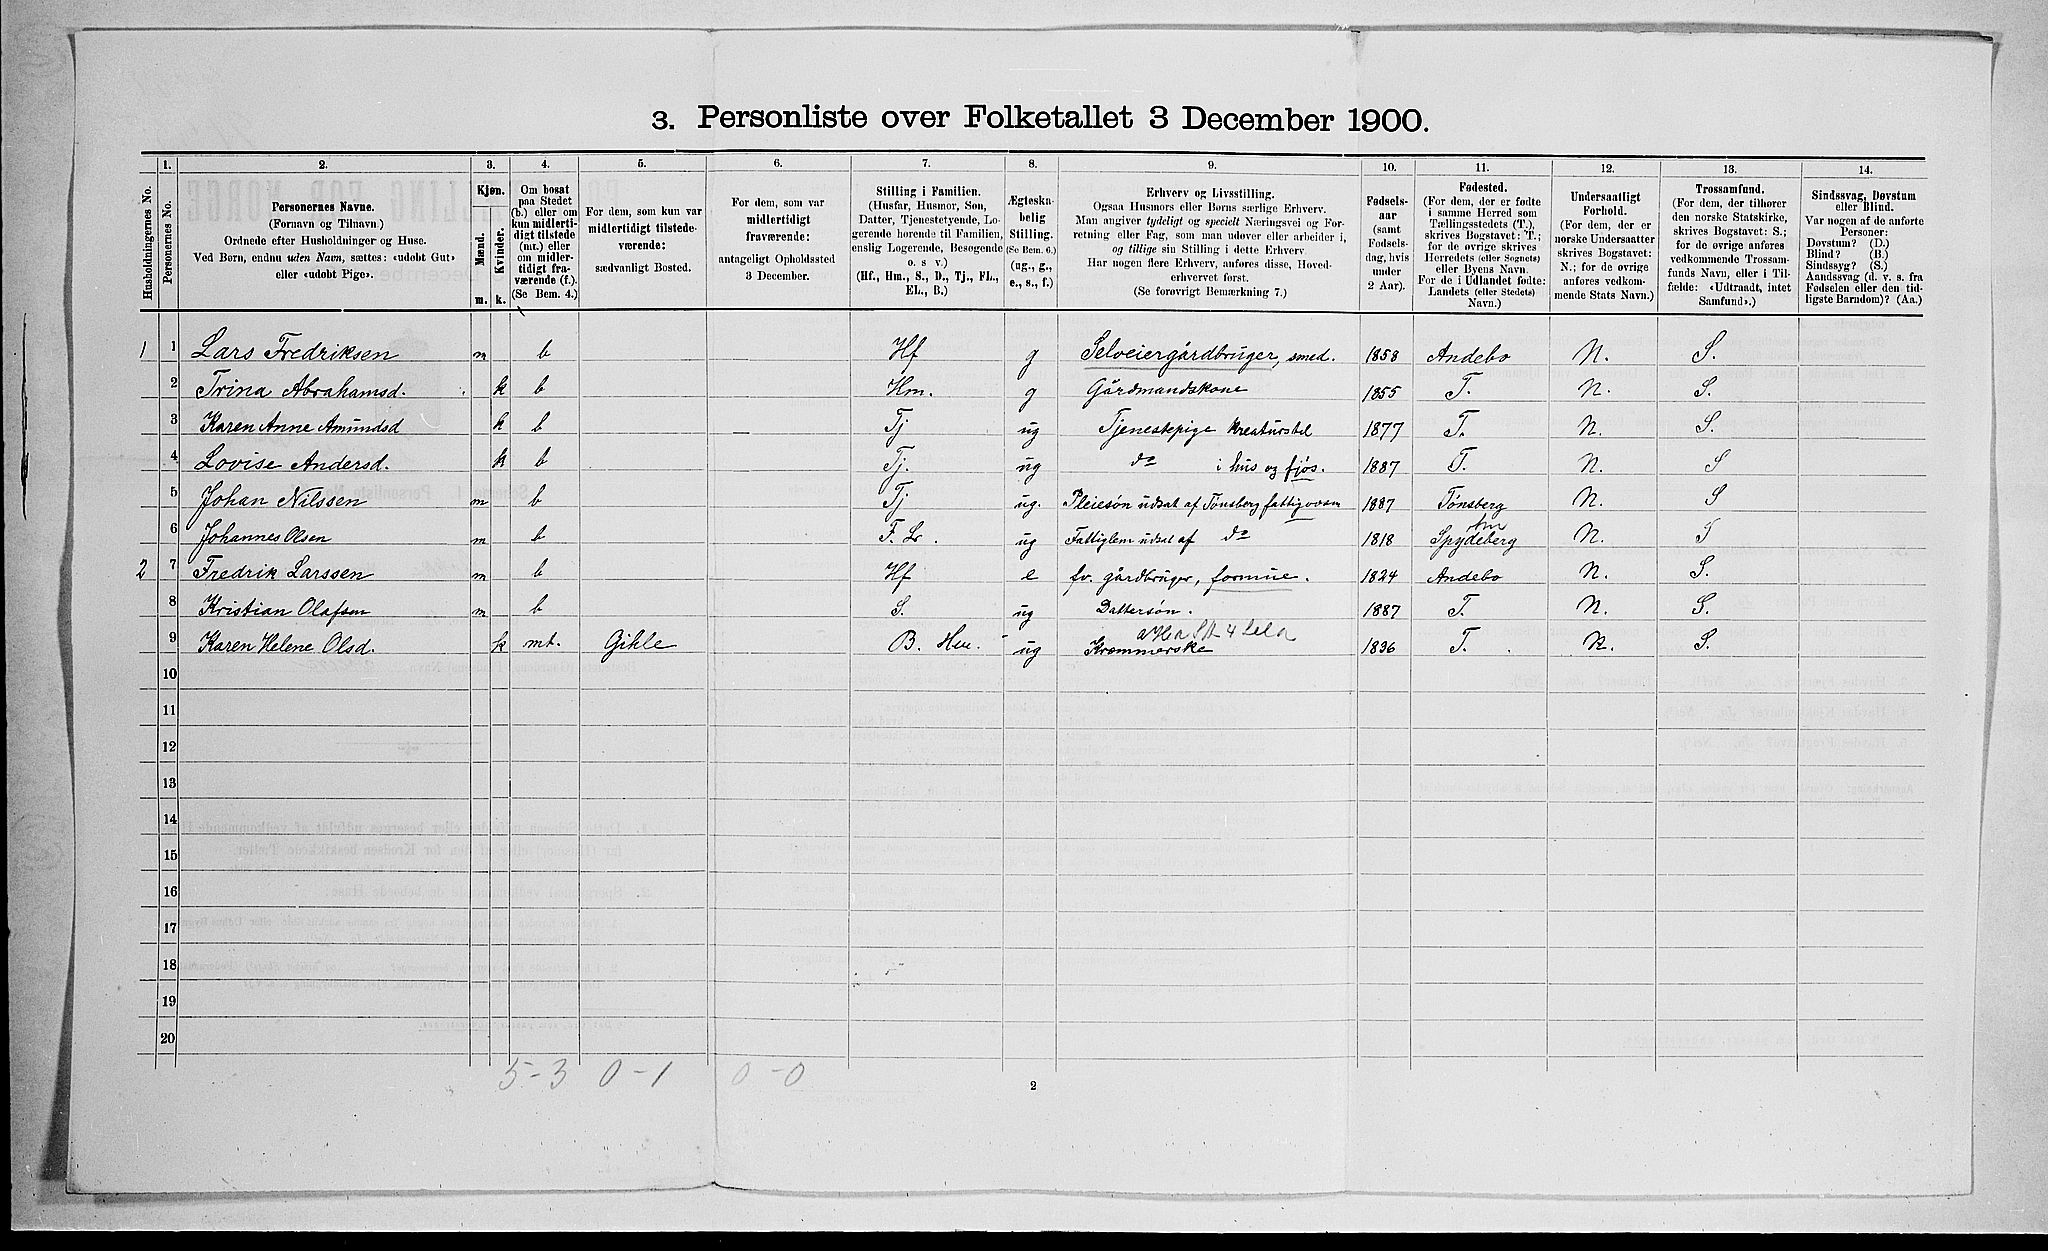 3. Personliste over Folketallet 3 December 1900.
Husholdningernes No.
1. Personernes No.
2. Personernes Navne.
(Fornavn og Tilnavn)
Ordnede efter Husholdninger og Huse.
Ved Børn, endnu uden Navn, sættes: «udøbt Gut»
eller «udøbt Pige».
3. Kjøn.
Mænd. Kvinder.
m. k.
4. Om bosat
paa Stedet
(b.) eller om
kun midler-
tidigt tilstede
(mt.) eller
om midler-
tidigt fra-
værende (f.).
(Se Bem. 4.)
5. For dem, som kun var
midlertidigt tilstede-
værende:
sædvanligt Bosted.
6. For dem, som var
midlertidigt
fraværende:
antageligt Opholdssted
3 December.
7. Stilling i Familien.
(Husfar, Husmor, Søn,
Datter, Tjenestetyende, Lo-
gerende hørende til Familien,
enslig Logerende, Besøgende
o. s. v.)
(Hf., Hm., S., D., Tj., FL.,
EL., B.)
8. Ægteska-
belig
Stilling.
(Se Bem. 6.)
(ug., g.,
e., s., f.)
9. Erhverv og Livsstilling.
Ogsaa Husmors eller Børns særlige Erhverv.
Man angiver tydeligt og specielt Næringsvei og For-
retning eller Fag, som man udøver eller arbeider i,
og tillige sin Stilling i dette Erhverv.
Har nogen flere Erhverv, anføres disse, Hoved-
erhvervet først.
(Se forøvrigt Bemærkning 7.)
10. Fødsels-
aar
(samt
Fødsels-
dag, hvis
under
2 Aar).
11. Fødested.
(For dem, der er fødte
i samme Herred som
Tællingsstedets (T.),
skrives Bogstavet: T.;
for de øvrige skrives
Herredets (eller Sognets)
eller Byens Navn.
For de i Udlandet fødte:
Landets (eller Stedets)
Navn.)
12. Undersaatligt
Forhold.
(For dem, der er
norske Undersaatter
skrives Bogstavet:
N.; for de øvrige
anføres vedkom-
mende Stats Navn.)
13. Trossamfund.
(For dem, der tilhører
den norske Statskirke,
skrives Bogstavet: S.;
for de øvrige anføres
vedkommende Trossam-
funds Navn, eller i Til-
fælde: «Udtraadt, intet
Samfund».)
14. Sindssvag, Døvstum
eller Blind.
Var nogen af de anførte
Personer:
Døvstum? (D.)
Blind? (B.)
Sindssyg? (S.)
Aandssvag (d. v. s. fra
Fødselen eller den tid-
ligste Barndom)? (Aa.)
1 1 Lars Fredriksen m b Hf g Selveiergårdbruger, smed. 1858 Andebo N. S.
2 Trina Abrahamsd. k b Hm. g Gårdmandskone 1855 T. N. S.
3 Karen Anne Amundsd k b — Tj ug Tjenestepige kreaturstel 1877 T. N. S.
4 Lovise Andersd. k b Tj. ug do i hus og fjøs. 1887 T. N. S
5 Johan Nilssen m b Tj ug. Pleiesøn udsat af Tønsberg fattigvæsen 1887 Tønsberg N. S
6 Johannes Olsen m b F. L. ug Fattiglem udsat af do 1818 Spydeberg N. T
2 7 Fredrik Larssen m b Hf e fv. gårdbruger, formue. 1824 Andebo N. S.
8 Kristian Olafsen m b S. ug Dattersøn. 1887 T. N. S.
9 Karen Helene Olsd. k mt. Gihle B. ug Kræmmerske 1836 T. N. S.
10
11
12
13
14
15
16
17
18
19
20
5-3 0-1 0-0
2